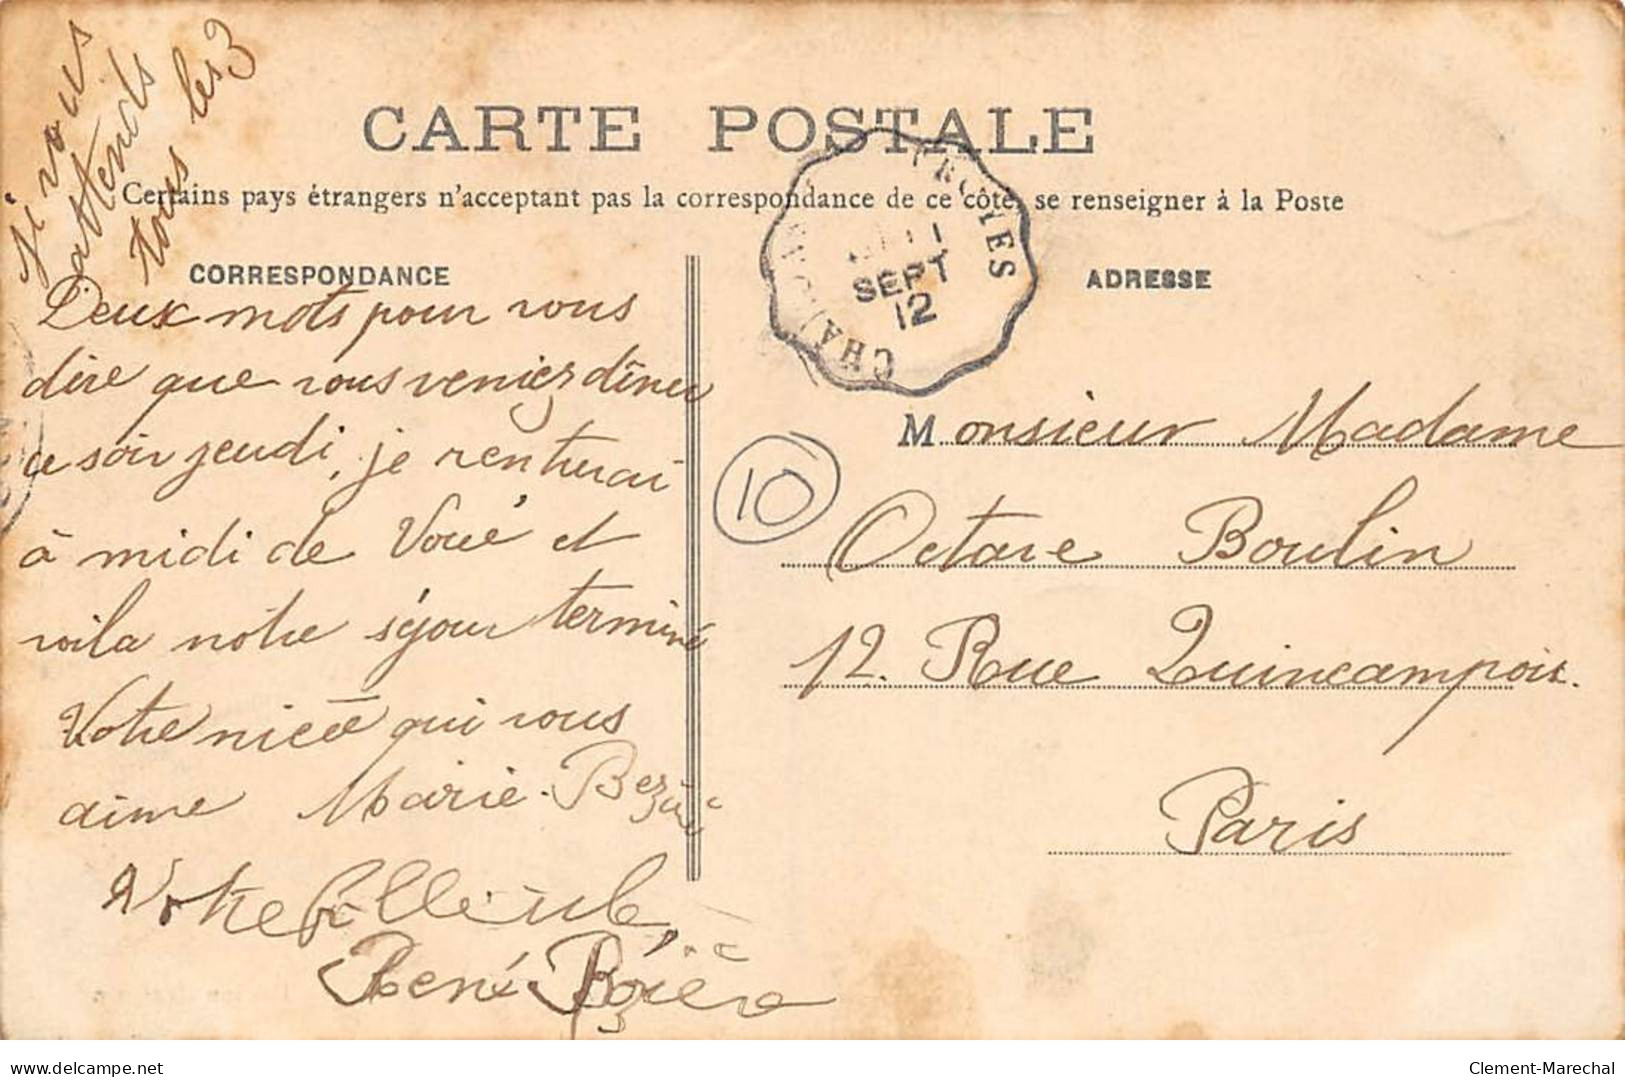 ji vous
attends
tous les 3
CARTE POSTALE
Certains pays étrangers n'acceptant pas la correspondance de ce côté, se renseigner à la Poste
CORRESPONDANCE
Deux mots pour vous
dire que vous veniez dîner
ce soir jeudi, je renturai
à midi de Voué et
voila notre séjour terminé
Votre nicée qui vous
aime Marie
Votre
René
TROYES
11
SEPT
12
CHA
ADRESSE
Monsieur Madame
Octave Boulin
12. Rue Quincampoix.
Paris
10
Clement-Marechal